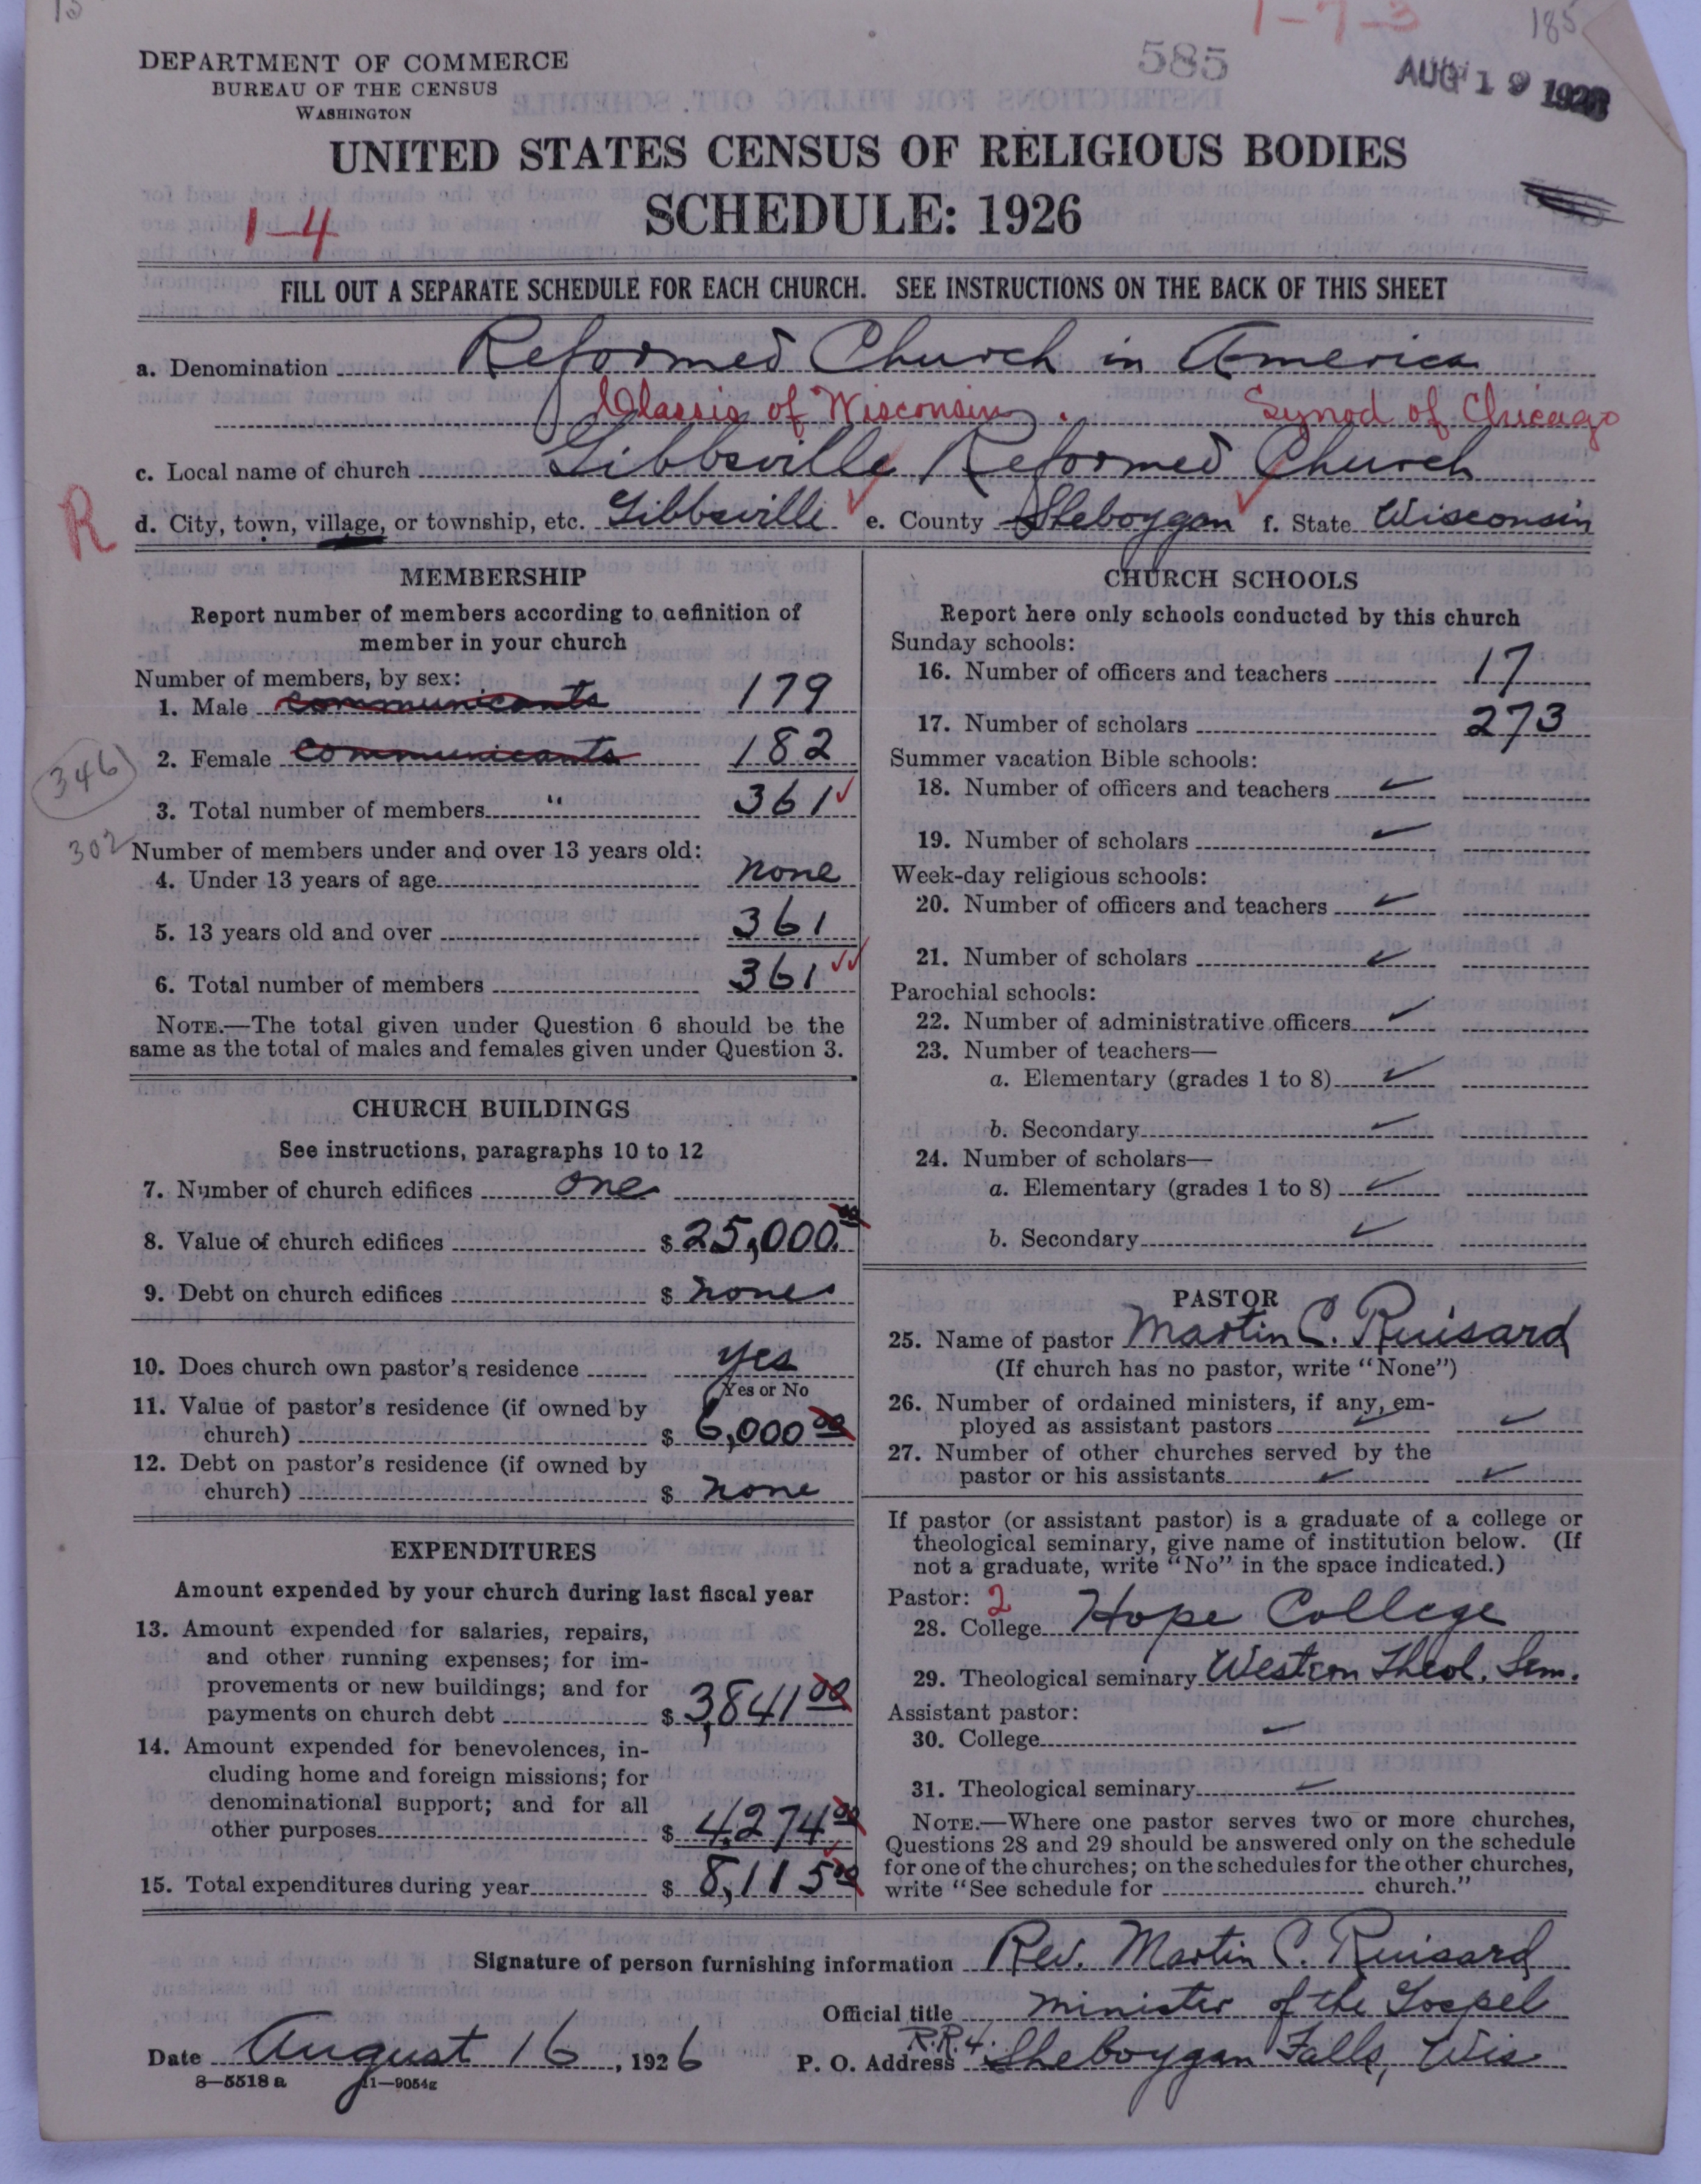 585
1-7-3
185
AUG 19 1926
DEPARTMENT OF COMMERCE
BUREAU OF THE CENSUS
WASHINGTON
UNITED STATES CENSUS OF RELIGIOUS BODIES
SCHEDULE: 1926
1-4
FILL OUT A SEPARATE SCHEDULE FOR EACH CHURCH. SEE INSTRUCTIONS ON THE BACK OF THIS SHEET
a. Denomination Reformed Church in America
Classis of Wisconsin. Synod of Chicago
c. Local name of church Gibbsville Reformed Church
R
d. City, town, village, or township, etc. Gibbsville e. County Sheboygan f. State Wisconsin
MEMBERSHIP
Report number of members according to definition of
member in your church
Number of members, by sex:
1. Male communicants 179
2. Female communicants 182
346
3. Total number of members " 361
302
Number of members under and over 13 years old:
4. Under 13 years of age none
5. 13 years old and over 361
6. Total number of members 361
NOTE.—The total given under Question 6 should be the
same as the total of males and females given under Question 3.
CHURCH BUILDINGS
See instructions, paragraphs 10 to 12
7. Number of church edifices one
8. Value of church edifices $ 25,000.00
9. Debt on church edifices $ none
10. Does church own pastor's residence yes
Yes or No
11. Value of pastor's residence (if owned by
church) $ 6,000 00
12. Debt on pastor's residence (if owned by
church) $ none
EXPENDITURES
Amount expended by your church during last fiscal year
13. Amount expended for salaries, repairs,
and other running expenses; for im-
provements or new buildings; and for
payments on church debt $ 3,841 00
14. Amount expended for benevolences, in-
cluding home and foreign missions; for
denominational support; and for all
other purposes $ 4,274 00
15. Total expenditures during year $ 8,115 00
CHURCH SCHOOLS
Report here only schools conducted by this church
Sunday schools:
16. Number of officers and teachers 17
17. Number of scholars 273
Summer vacation Bible schools:
18. Number of officers and teachers
19. Number of scholars
Week-day religious schools:
20. Number of officers and teachers
21. Number of scholars
Parochial schools:
22. Number of administrative officers
23. Number of teachers—
a. Elementary (grades 1 to 8)
b. Secondary
24. Number of scholars—
a. Elementary (grades 1 to 8)
b. Secondary
PASTOR
25. Name of pastor Martin C. Ruisard
(If church has no pastor, write "None")
26. Number of ordained ministers, if any, em-
ployed as assistant pastors
27. Number of other churches served by the
pastor or his assistants
If pastor (or assistant pastor) is a graduate of a college or
theological seminary, give name of institution below. (If
not a graduate, write "No" in the space indicated.)
Pastor: 2
28. College Hope College
29. Theological seminary Western Theol. Sem.
Assistant pastor:
30. College
31. Theological seminary
NOTE.—Where one pastor serves two or more churches,
Questions 28 and 29 should be answered only on the schedule
for one of the churches; on the schedules for the other churches,
write "See schedule for church."
Signature of person furnishing information Rev. Martin C. Ruisard
Official title Minister of the Gospel
Date August 16, 1926 P. O. Address R.R. 4. Sheboygan Falls, Wis
8—5518 a 11—9054g